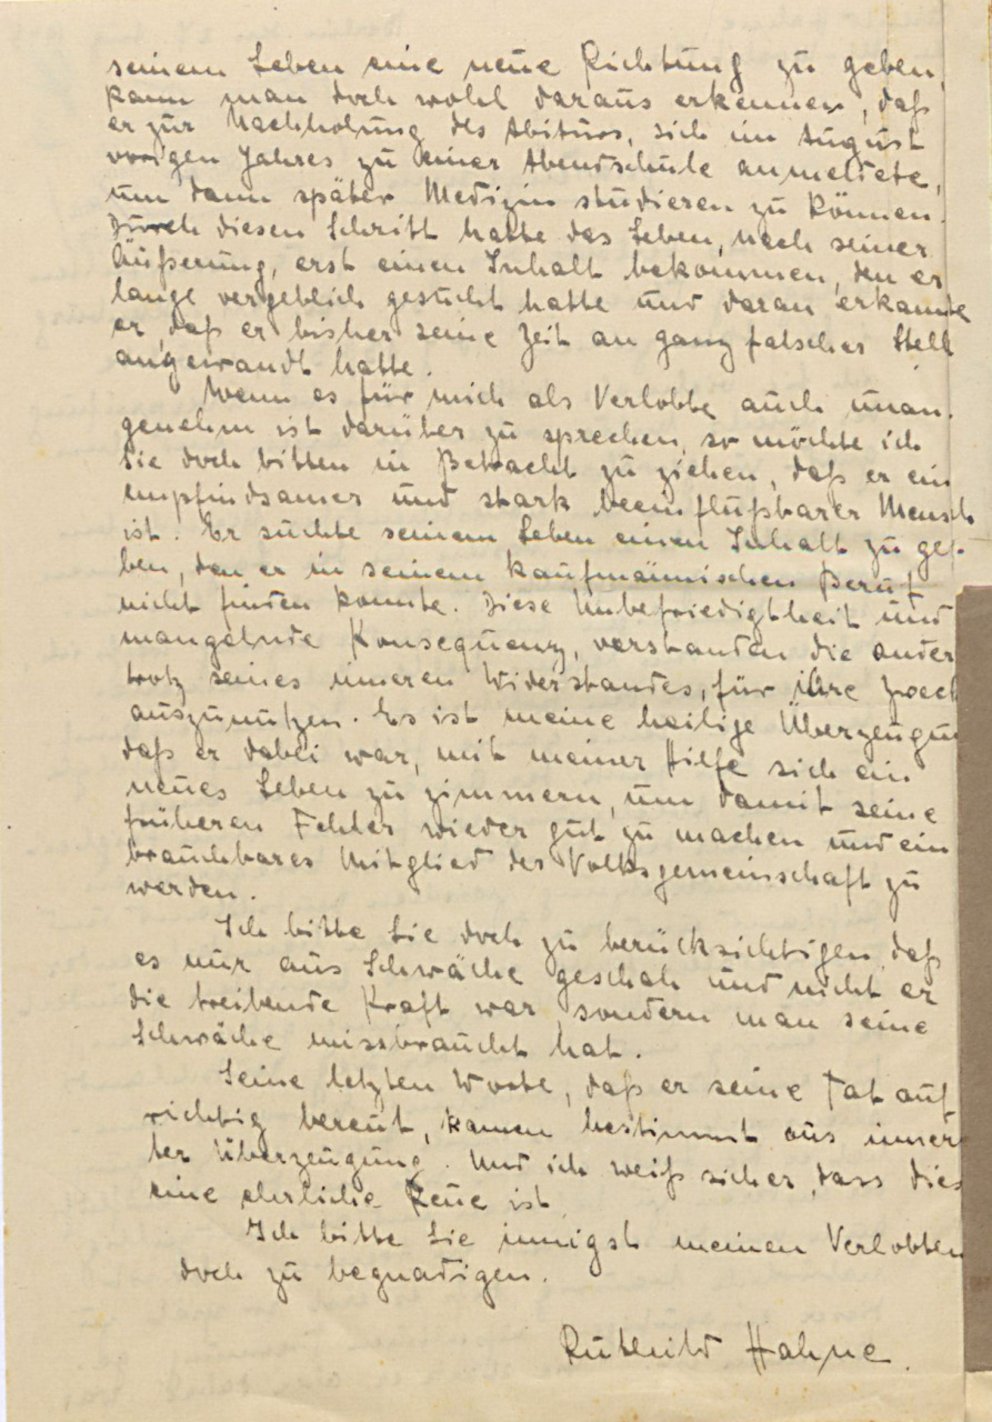 seinem Leben eine neue Richtung zu geben,
kann man doch wohl daraus erkennen, daß
er zur Nachholung des Abiturs, sich im August
vorigen Jahres zu einer Abendschule anmeldete,
um dann später Medizin studieren zu können.
Durch diesen Schritt hatte das Leben, nach seiner
Äußerung, erst einen Inhalt bekommen, den er
lange vergeblich gesucht hatte und daran erkannte
er, daß er bisher seine Zeit an ganz falscher Stell
angewandt hatte.
Wenn es für mich als Verlobte auch unan-
genehm ist darüber zu sprechen, so möchte ich
Sie doch bitten in Betracht zu ziehen, daß er ein
empfindsamer und stark beeinflußbarer Mensch
ist. Er suchte seinem Leben einen Inhalt zu ge-
ben, den er in seinem kaufmännischen Beruf
nicht finden konnte. Diese Unbefriedigtheit und
mangelnde Konsequenz, verstanden die ander
trotz seines inneren Widerstandes, für ihre Zweck
auszunutzen. Es ist meine heilige Überzeugun
daß er dabei war, mit meiner Hilfe sich ein
neues Leben zu zimmern, um damit seine
früheren Fehler wieder gut zu machen und ein
brauchbares Mitglied der Volksgemeinschaft zu
werden.
Ich bitte Sie doch zu berücksichtigen, daß
es nur aus Schwäche geschah und nicht er
die treibende Kraft war, sondern man seine
Schwäche missbraucht hat.
Seine letzten Worte, daß er seine Tat auf
richtig bereut, kamen bestimmt aus inner
ter Überzeugung. Und ich weiß sicher, dass dies
eine ehrliche Reue ist.
Ich bitte Sie innigst meinen Verlobten
doch zu begnadigen.
Ruthild Hahne.